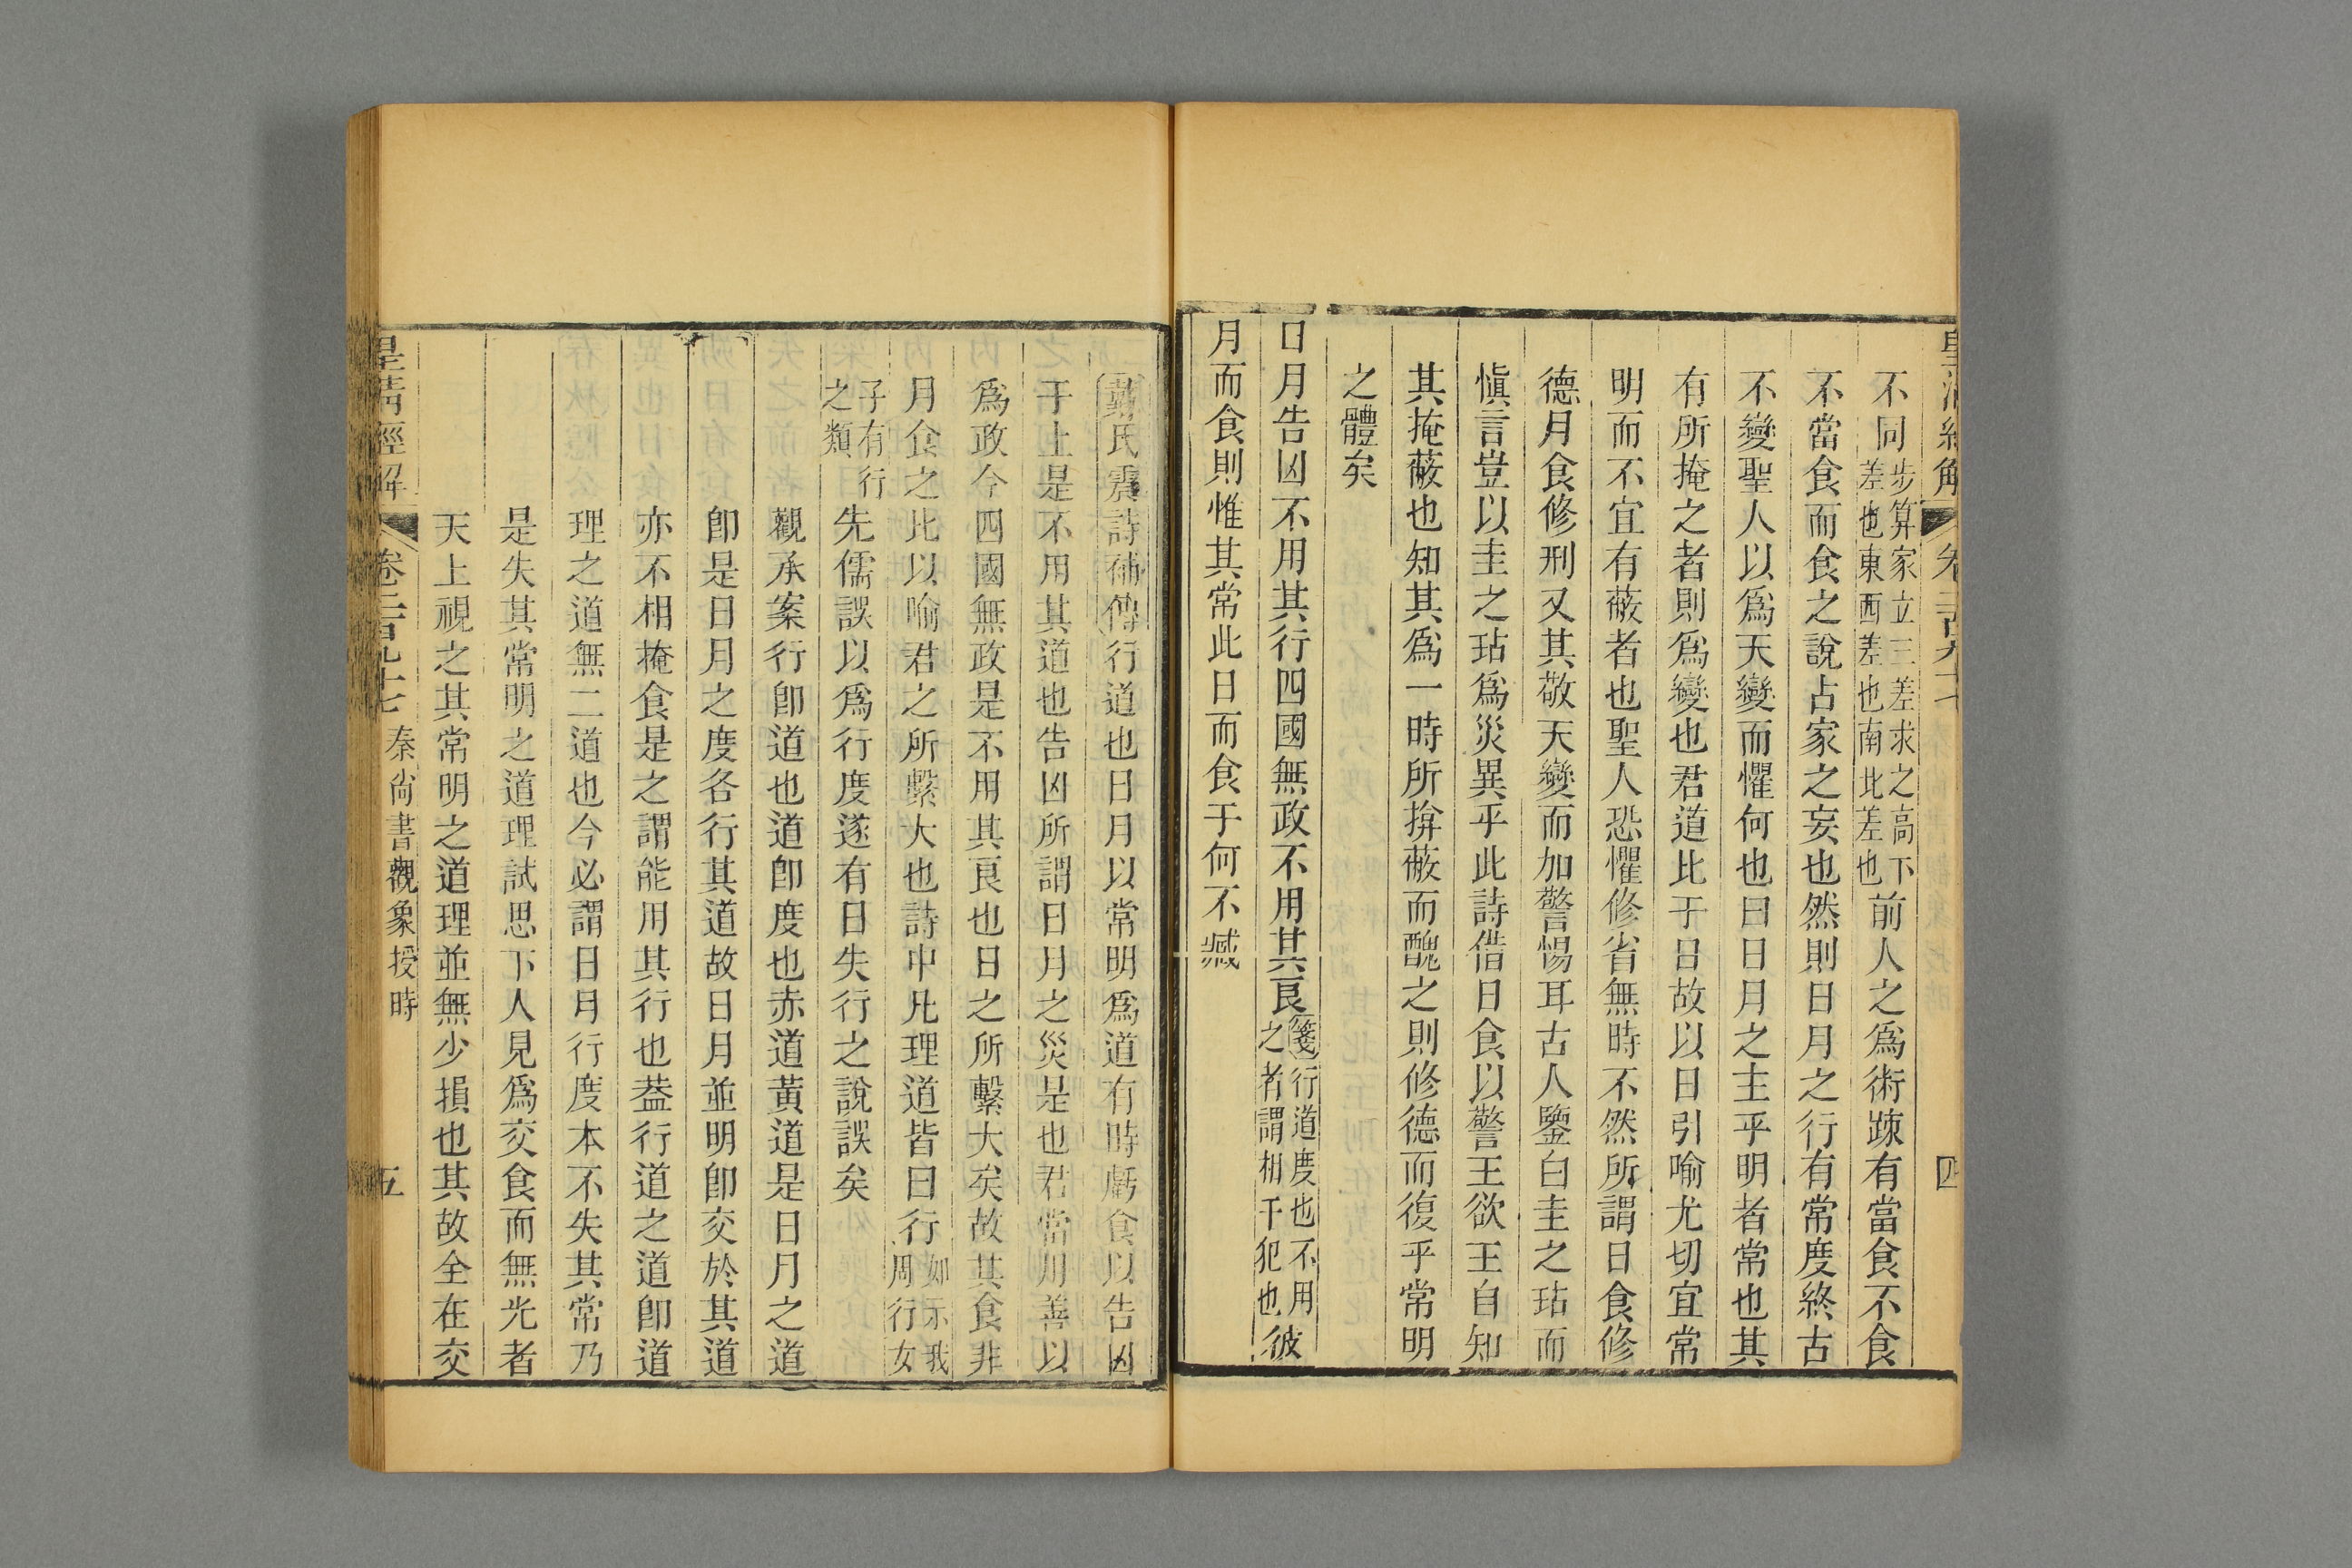 皇清經解 卷二百九十七 四
不同步算家立三差求之高下差也東西差也南北差也前人之爲術疎有當食不食
不當食而食之說占家之妄也然則日月之行有常度終古
不變聖人以爲天變而懼何也曰日月之主乎明者常也其
有所掩之者則爲變也君道比于日故以日引喻尤切宜常
明而不宜有蔽者也聖人恐懼修省無時不然所謂日食修
德月食修刑又其敬天變而加警惕耳古人鑒白圭之玷而
愼言豈以圭之玷爲災異乎此詩借日食以警王欲王自知
其掩蔽也知其爲一時所揜蔽而醜之則修德而復乎常明
之體矣
日月告凶不用其行四國無政不用其良箋行道度也不用之者謂相干犯也彼
月而食則惟其常此日而食于何不臧
戴氏震詩補傳行道也日月以常明爲道有時虧食以告凶
于上是不用其道也告凶所謂日月之災是也君當用善以
爲政今四國無政是不用其良也日之所繫大矣故其食非
月食之比以喻君之所繫大也詩中凡理道皆曰行如示我周行女
子有行之類先儒誤以爲行度遂有日失行之說誤矣
觀承案行卽道也道卽度也赤道黃道是日月之道
卽是日月之度各行其道故日月並明卽交於其道
亦不相掩食是之謂能用其行也葢行道之道卽道
理之道無二道也今必謂日月行度本不失其常乃
是失其常明之道理試思下人見爲交食而無光者
天上視之其常明之道理並無少損也其故全在交
皇清經解 卷二百九十七 秦尚書觀象授時 五